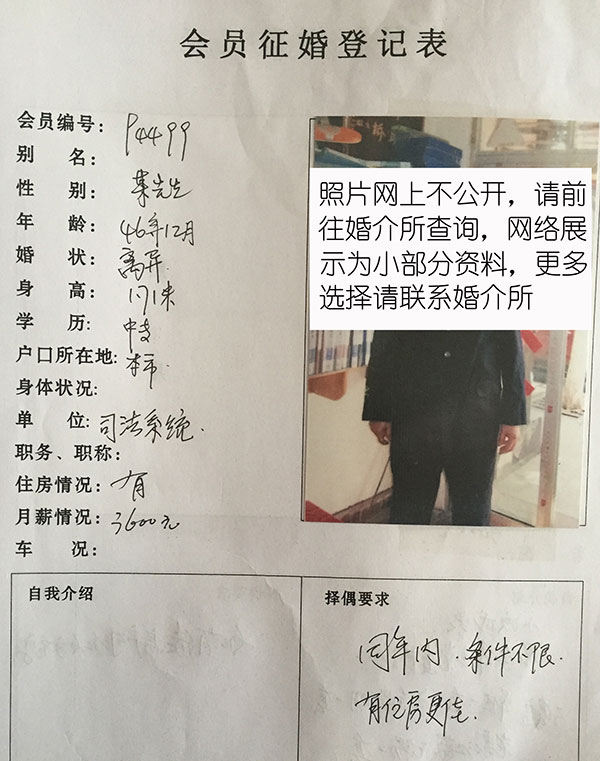 会员征婚登记表
会员编号: P4499
别 名:
性 别: 某先生
年 龄: 46年12月
婚 状: 离异
身 高: 1.71米
学 历: 中专
户口所在地: 本市.
身体状况:
单 位: 司法系统.
职务、职称:
住房情况: 有
月薪情况: 3600元
车 况:
照片网上不公开，请前
往婚介所查询，网络展
示为小部分资料，更多
选择请联系婚介所
自我介绍
择偶要求
同年内.条件不限.
有住房更佳.